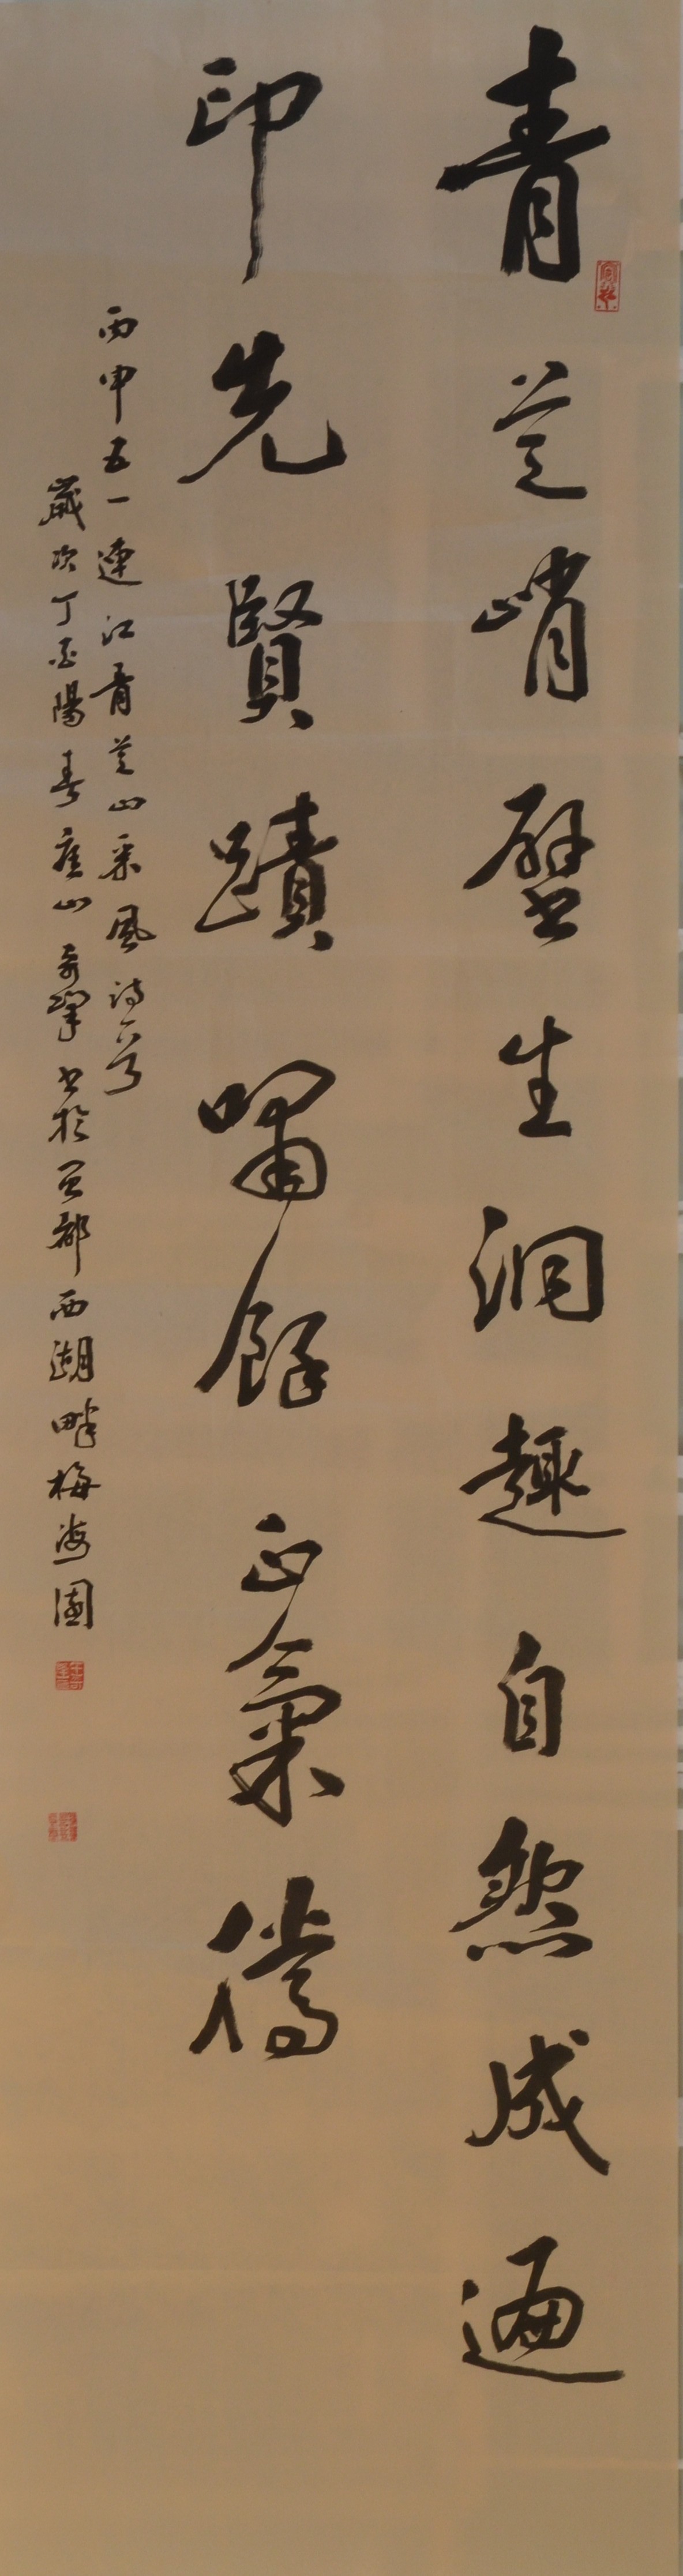 青芝峭壁生洞趣自然成遍
印先賢蹟嘯餘正氣騰
丙申五一連江青芝山采風詩一首
歲次丁酉陽春 山 書於 都西湖畔梅海園